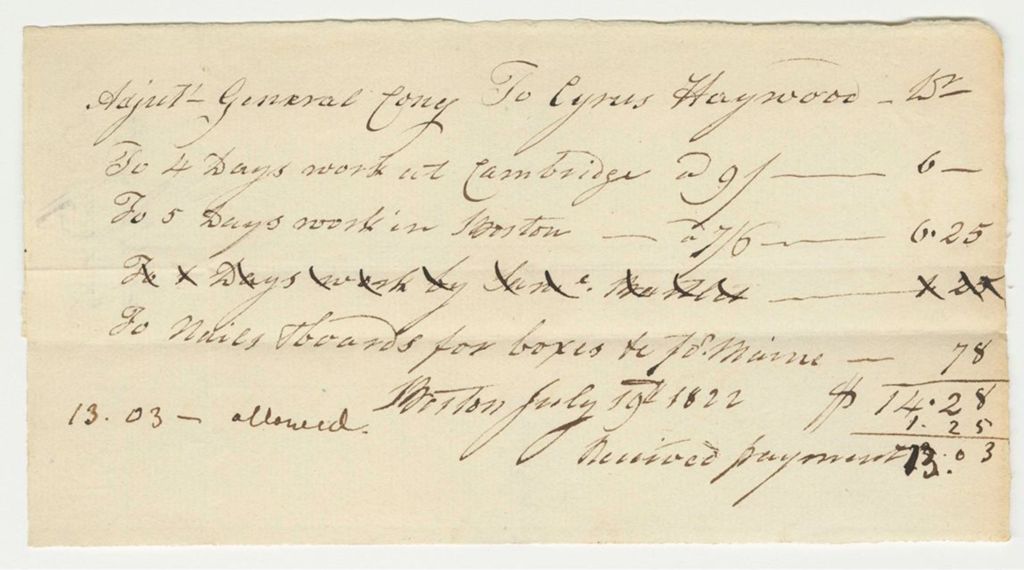 Adjut- General Cony To Cyrus Haywood - Dr
To 4 Days work at Cambridge a 9/ — 6 —
To 5 Days work in Boston — a 7/6 — 6.25
Days work by
To Nails & boards for boxes &c fo. Maine — 78
Boston July 19th 1822 $ 14.28
1.25
13.03 — allowed.
Received payment 13.03